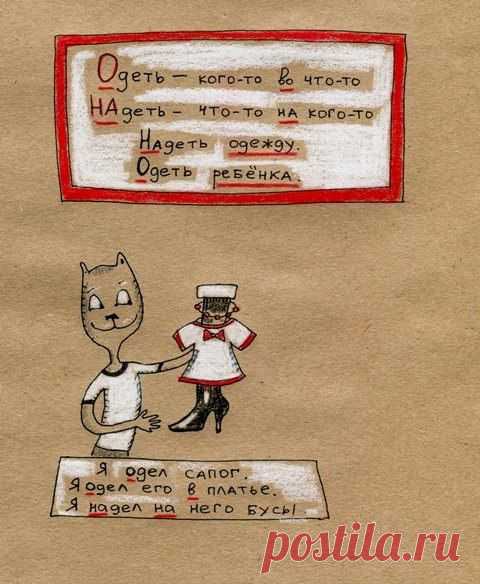 Одеть – кого-то во что-то
НАдеть – что-то на кого-то
Надеть одежду.
Одеть ребёнка.
Я одел сапог.
Я одел его в платье.
Я надел на него бусы
postila.ru